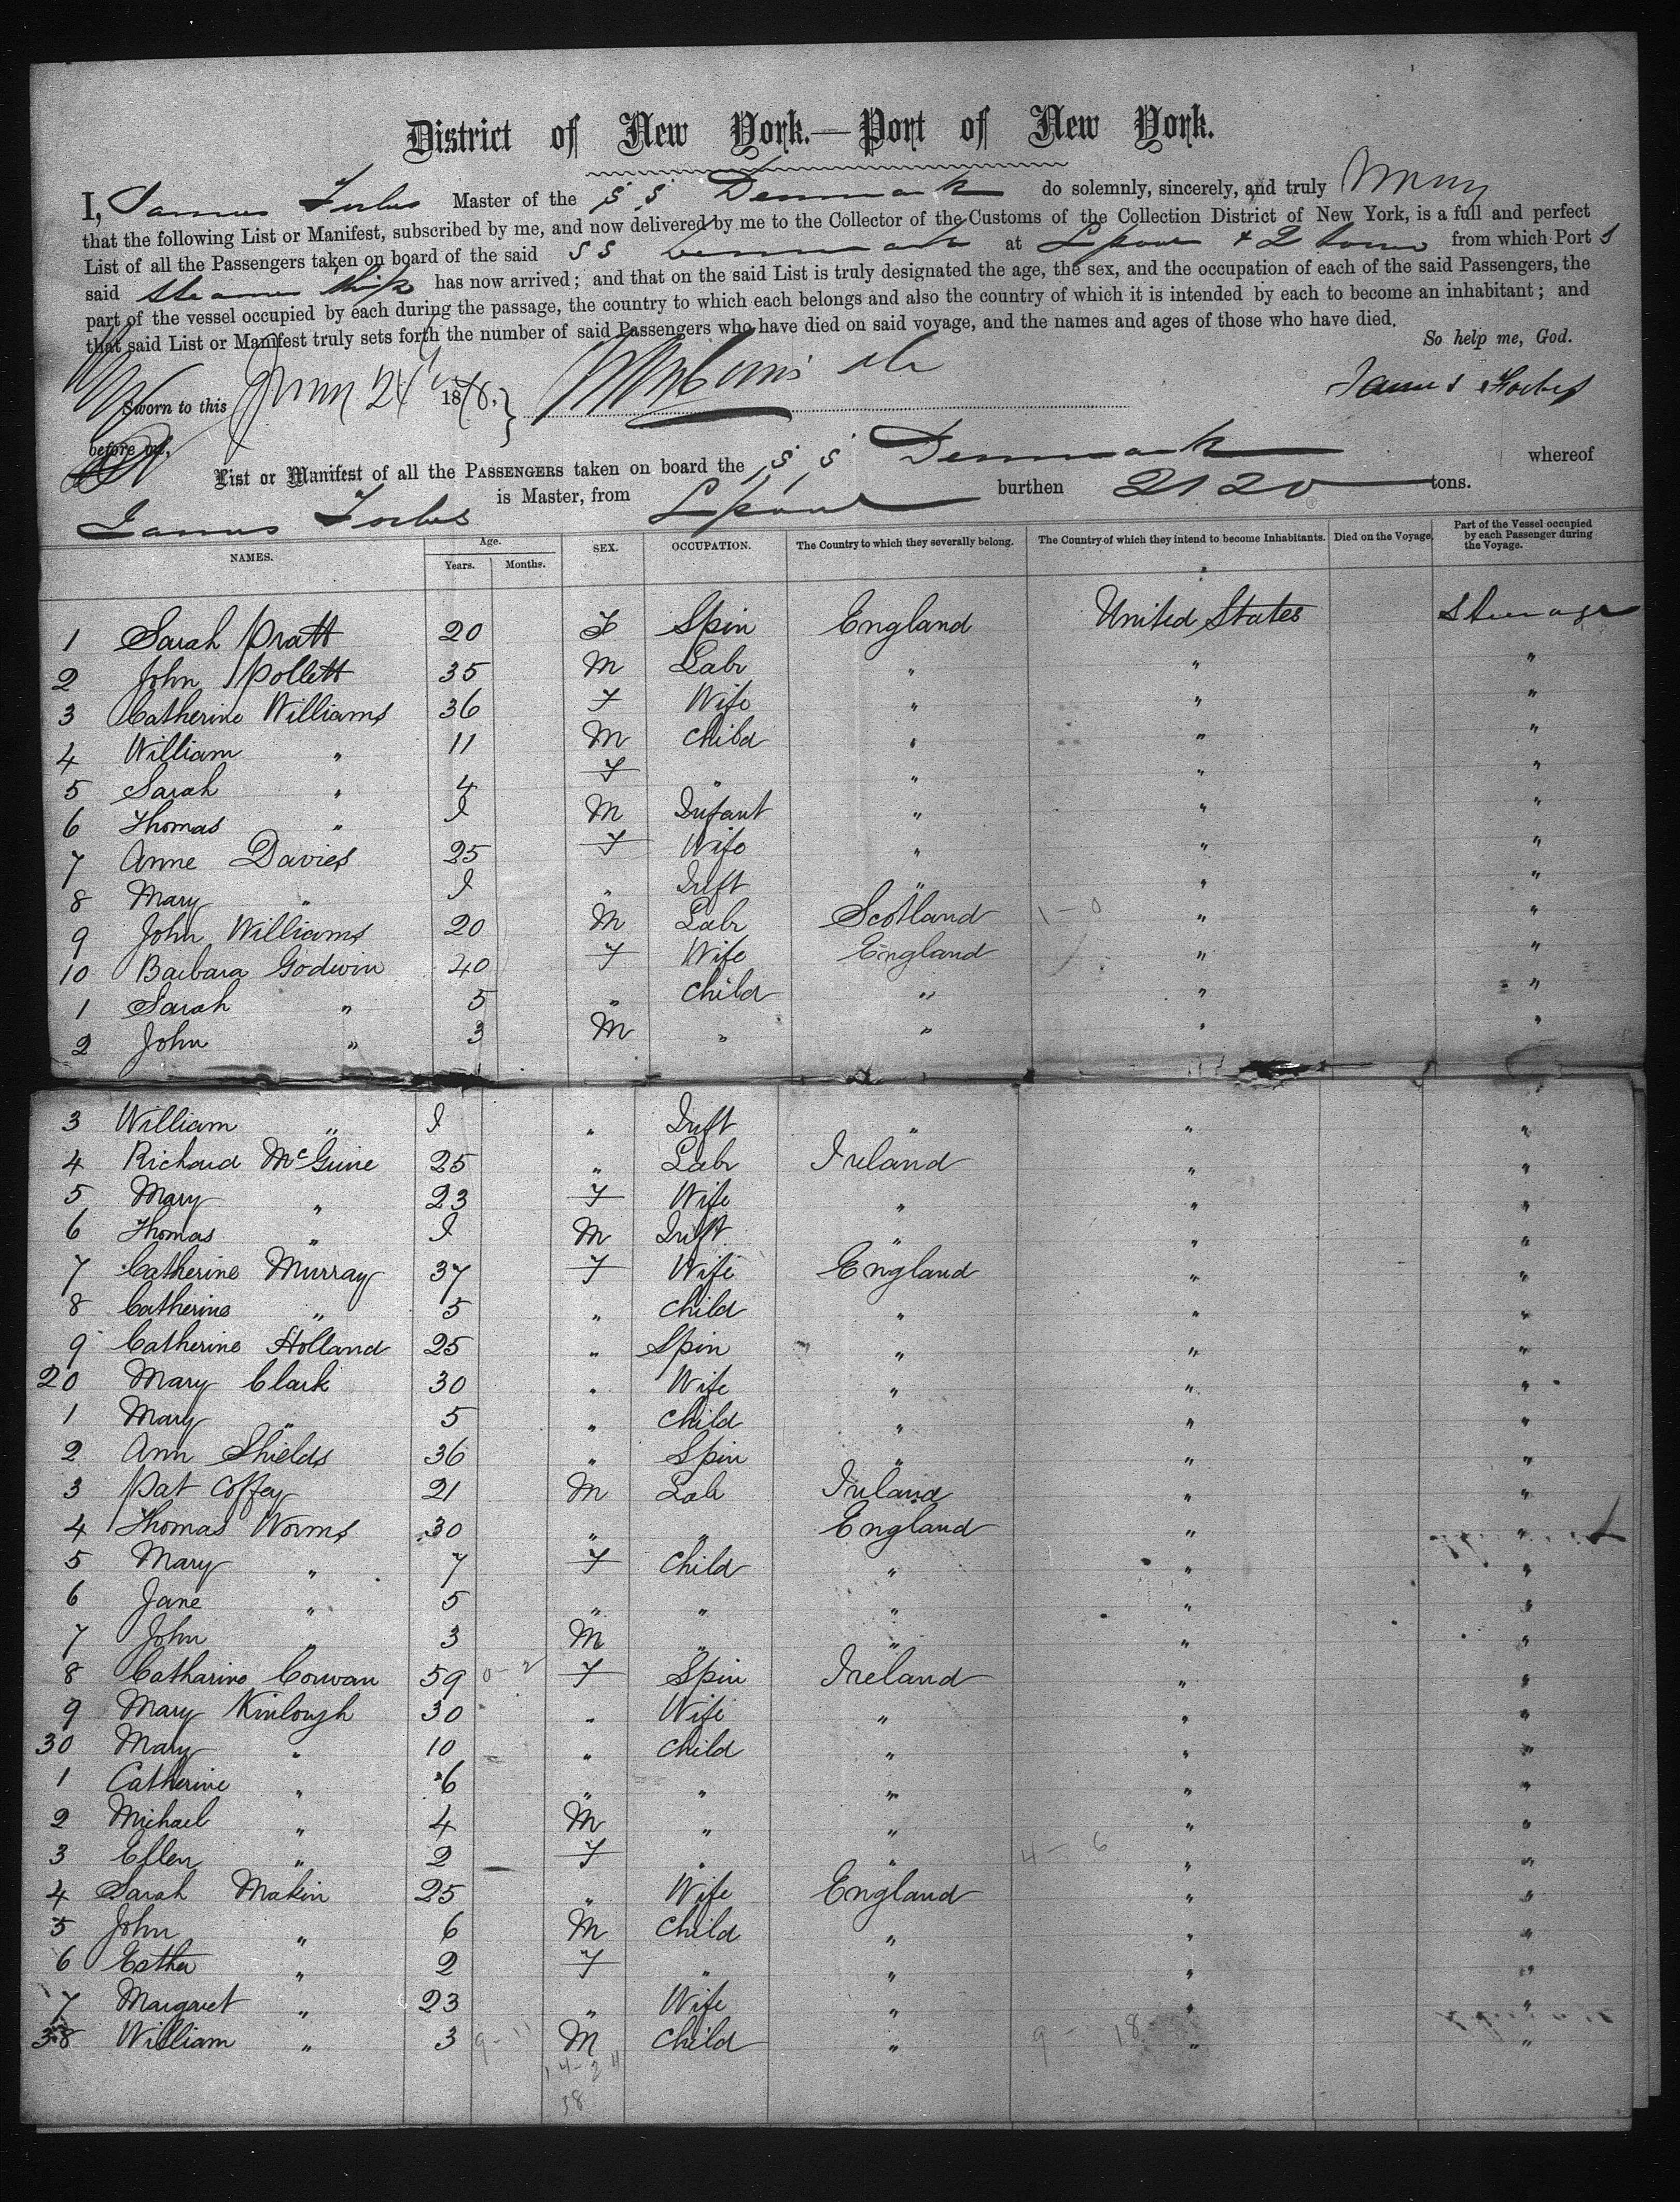 District of New York.—Port of New York.
I, James Forbes Master of the S S Denmark do solemnly, sincerely, and truly
that the following List or Manifest, subscribed by me, and now delivered by me to the Collector of the Customs of the Collection District of New York, is a full and perfect
List of all the Passengers taken on board of the said S S Denmark at Lpool & Q town from which Port s
said Steam Ship has now arrived; and that on the said List is truly designated the age, the sex, and the occupation of each of the said Passengers, the
part of the vessel occupied by each during the passage, the country to which each belongs and also the country of which it is intended by each to become an inhabitant; and
that said List or Manifest truly sets forth the number of said Passengers who have died on said voyage, and the names and ages of those who have died.
So help me, God.
Sworn to this 24 1878. James Forbes
before me,
List or Manifest of all the PASSENGERS taken on board the S S Denmark whereof
James Forbes is Master, from Lpool burthen 2120 tons.
NAMES. Age. Years. Months. SEX. OCCUPATION. The Country to which they severally belong. The Country of which they intend to become Inhabitants. Died on the Voyage. Part of the Vessel occupied by each Passenger during the Voyage.
1 Sarah Pratt 20 F Spin England United States Steerage
2 John Pollett 35 M Labr " " "
3 Catherine Williams 36 F Wife " " "
4 William " 11 M Child " " "
5 Sarah " 4 F " " " "
6 Thomas " I M Infant " " "
7 Anne Davies 25 F Wife " " "
8 Mary " I " Inft " " "
9 John Williams 20 M Labr Scotland 1-0 " "
10 Barbara Godwin 40 F Wife England " "
1 Sarah " 5 " Child " " "
2 John " 3 M " " " "
3 William " I " Inft " " "
4 Richard McGuire 25 " Labr Ireland " "
5 Mary " 23 F Wife " " "
6 Thomas " I M Inft " " "
7 Catherine Murray 37 F Wife England " "
8 Catherine " 5 " Child " " "
9 Catherine Holland 25 " Spin " " "
20 Mary Clark 30 " Wife " " "
1 Mary " 5 " Child " " "
2 Ann Shields 36 " Spin " " "
3 Pat Coffey 21 M Labr Ireland " "
4 Thomas Worms 30 " " England " "
5 Mary " 7 F Child " " "
6 Jane " 5 " " " " "
7 John " 3 M " " " "
8 Catharine Cowan 59 0-2 F Spin Ireland " "
9 Mary Kinlough 30 " Wife " " "
30 Mary " 10 " Child " " "
1 Catherine " 6 " " " " "
2 Michael " 4 M " " " "
3 Ellen " 2 F " " 4-6 " "
4 Sarah Makin 25 " Wife England " "
5 John " 6 M Child " " "
6 Esther " 2 F " " " "
7 Margaret " 23 " Wife " " "
38 William " 3 9-11 M Child " 9-18 " "
14-24
38